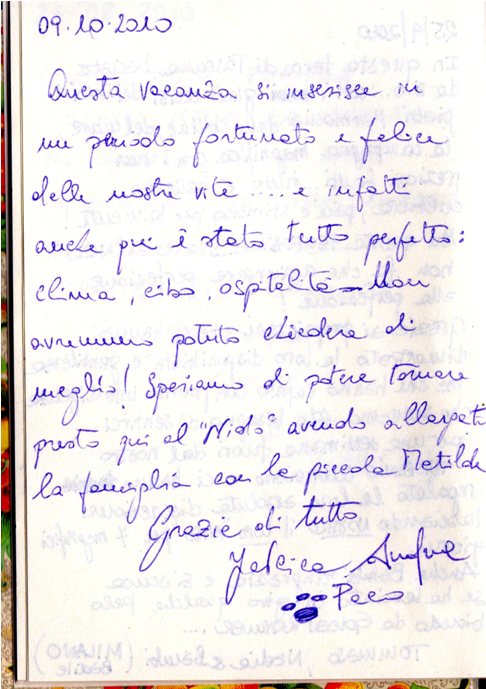 09.10.2010
Questa vacanza si inserisce in
un periodo fortunato e felice
delle nostre vite .... e infatti
anche qui è stato tutto perfetto:
clima, cibo, ospitalità – Non
avremmo potuto chiedere di
meglio! Speriamo di potere tornare
presto qui al "Nido" avendo allargato
la famiglia con la piccola Matilde
Grazie di tutto
Jessica Andrea
Paco